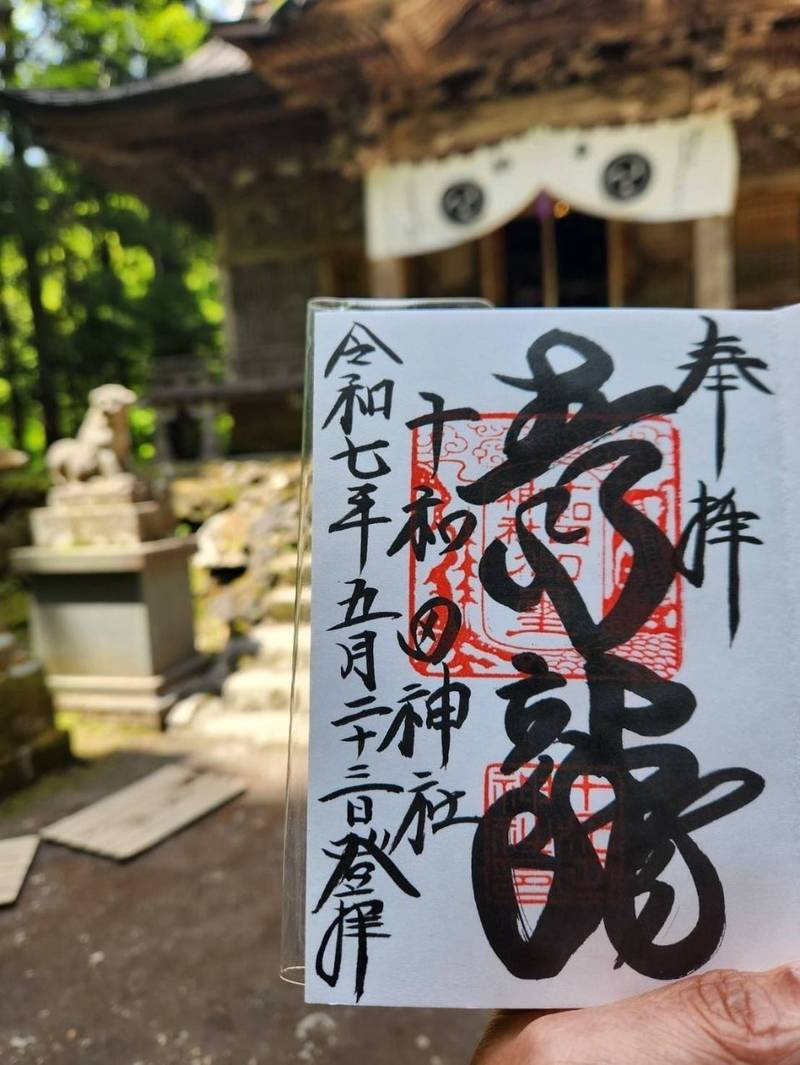 奉拝
青龍
十和田神社
令和七年五月二十三日登拝